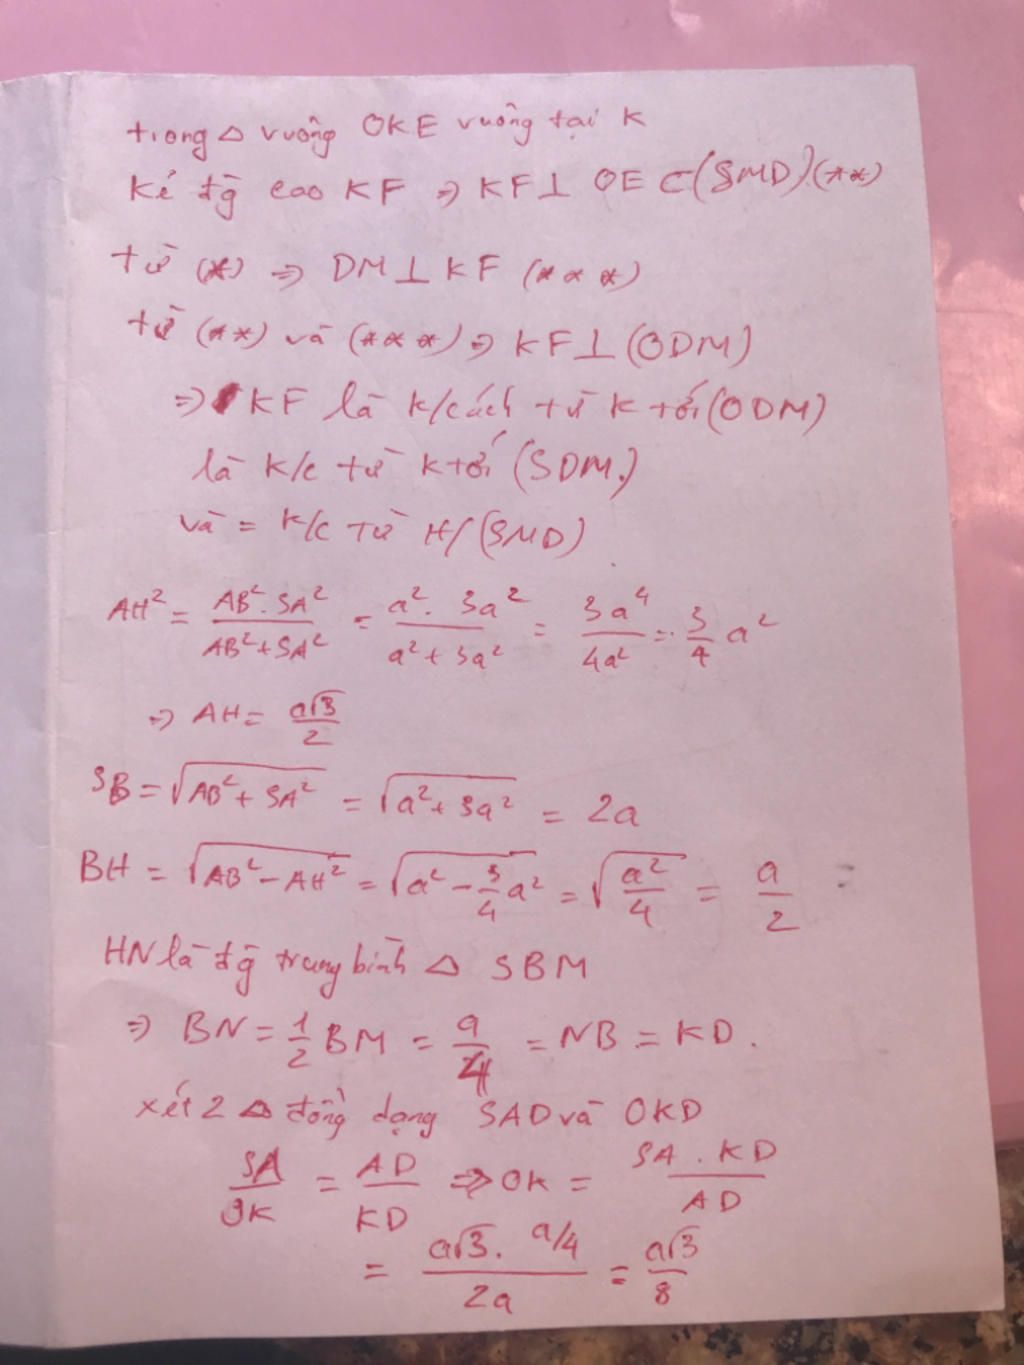 trong △ vuông OKE vuông tại K
Kẻ đg cao KF ⇒ KF ⊥ OE ⊂ (SMD) (**)
từ (*) ⇒ DM ⊥ KF (***)
từ (**) và (***) ⇒ KF ⊥ (ODM)
⇒ KF là k/cách từ K tới (ODM)
là k/c từ K tới (SDM.)
và = k/c từ H/(SMD)
AH² = AB². SA² / AB² + SA² = a². 3a² / a² + 3a² = 3a⁴ / 4a² = 3/4 a²
⇒ AH = a√3 / 2
SB = √(AB² + SA²) = √(a² + 3a²) = 2a
BH = √(AB² - AH²) = √(a² - 3/4 a²) = √(a²/4) = a/2 =
HN là đg trung bình △ SBM
⇒ BN = 1/2 BM = a/4 = NB = KD.
xét 2 △ đồng dạng SAD và OKD
SA / OK = AD / KD ⇒ OK = SA . KD / AD
= a√3 . a/4 / 2a = a√3 / 8